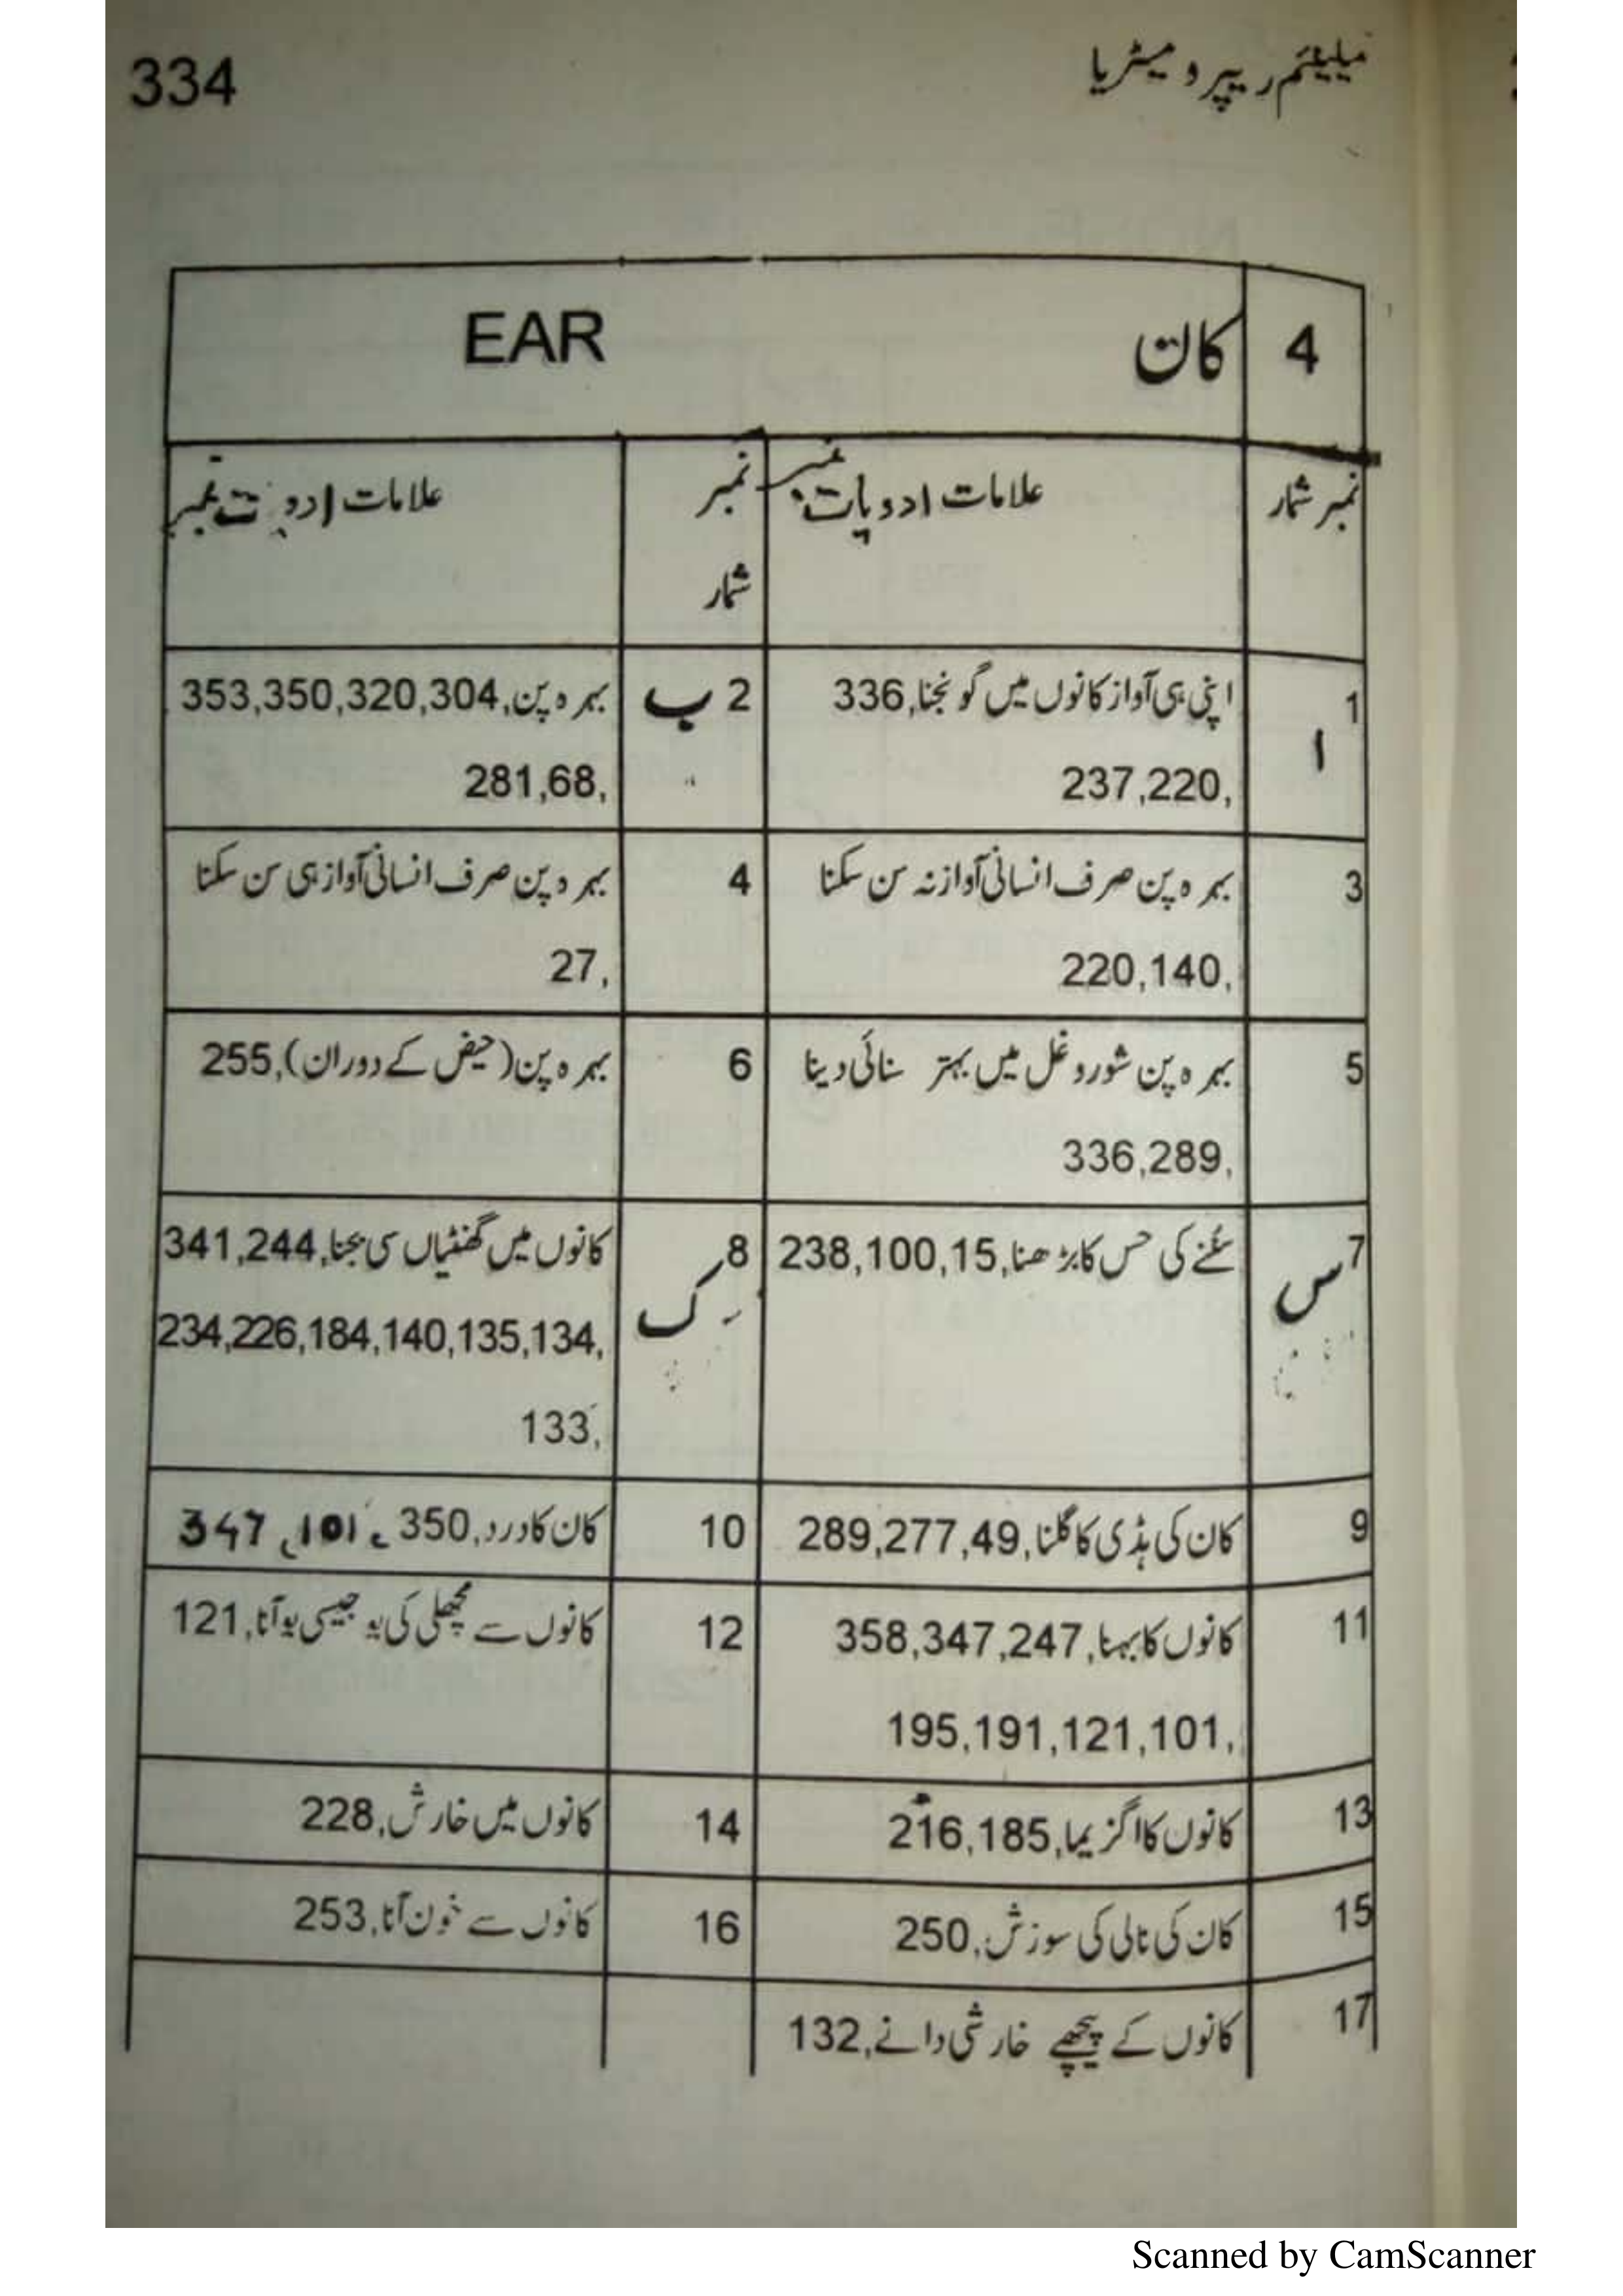 334
میلینئم ریپر و میٹریا
4 کان EAR
نمبر شمار علامات ادویات نمبر نمبر شمار علامات ادویات نمبر
1 ا اپنی ہی آواز کانوں میں گونجنا,336
237,220,
2 ب بہرہ پن,353,350,320,304
281,68,
3 بہرہ پن صرف انسانی آواز نہ سن سکنا
220,140,
4 بہرہ پن صرف انسانی آواز ہی سن سکنا
27,
5 بہرہ پن شور و غل میں بہتر سنائی دینا
336,289,
6 بہرہ پن (حیض کے دوران),255
7 س سننے کی حس کا بڑھنا,238,100,15
8 ک کانوں میں گھنٹیاں سی بجنا,341,244
234,226,184,140,135,134,
133,
9 کان کی ہڈی کا گلنا,289,277,49
10 کان کا درد,350، 101، 347
11 کانوں کا بہنا,358,347,247
195,191,121,101,
12 کانوں سے مچھلی کی بو جیسی بو آنا,121
13 کانوں کا اگزیما,216,185
14 کانوں میں خارش,228
15 کان کی نالی کی سوزش,250
16 کانوں سے خون آنا,253
17 کانوں کے پیچھے خارشی دانے,132
Scanned by CamScanner